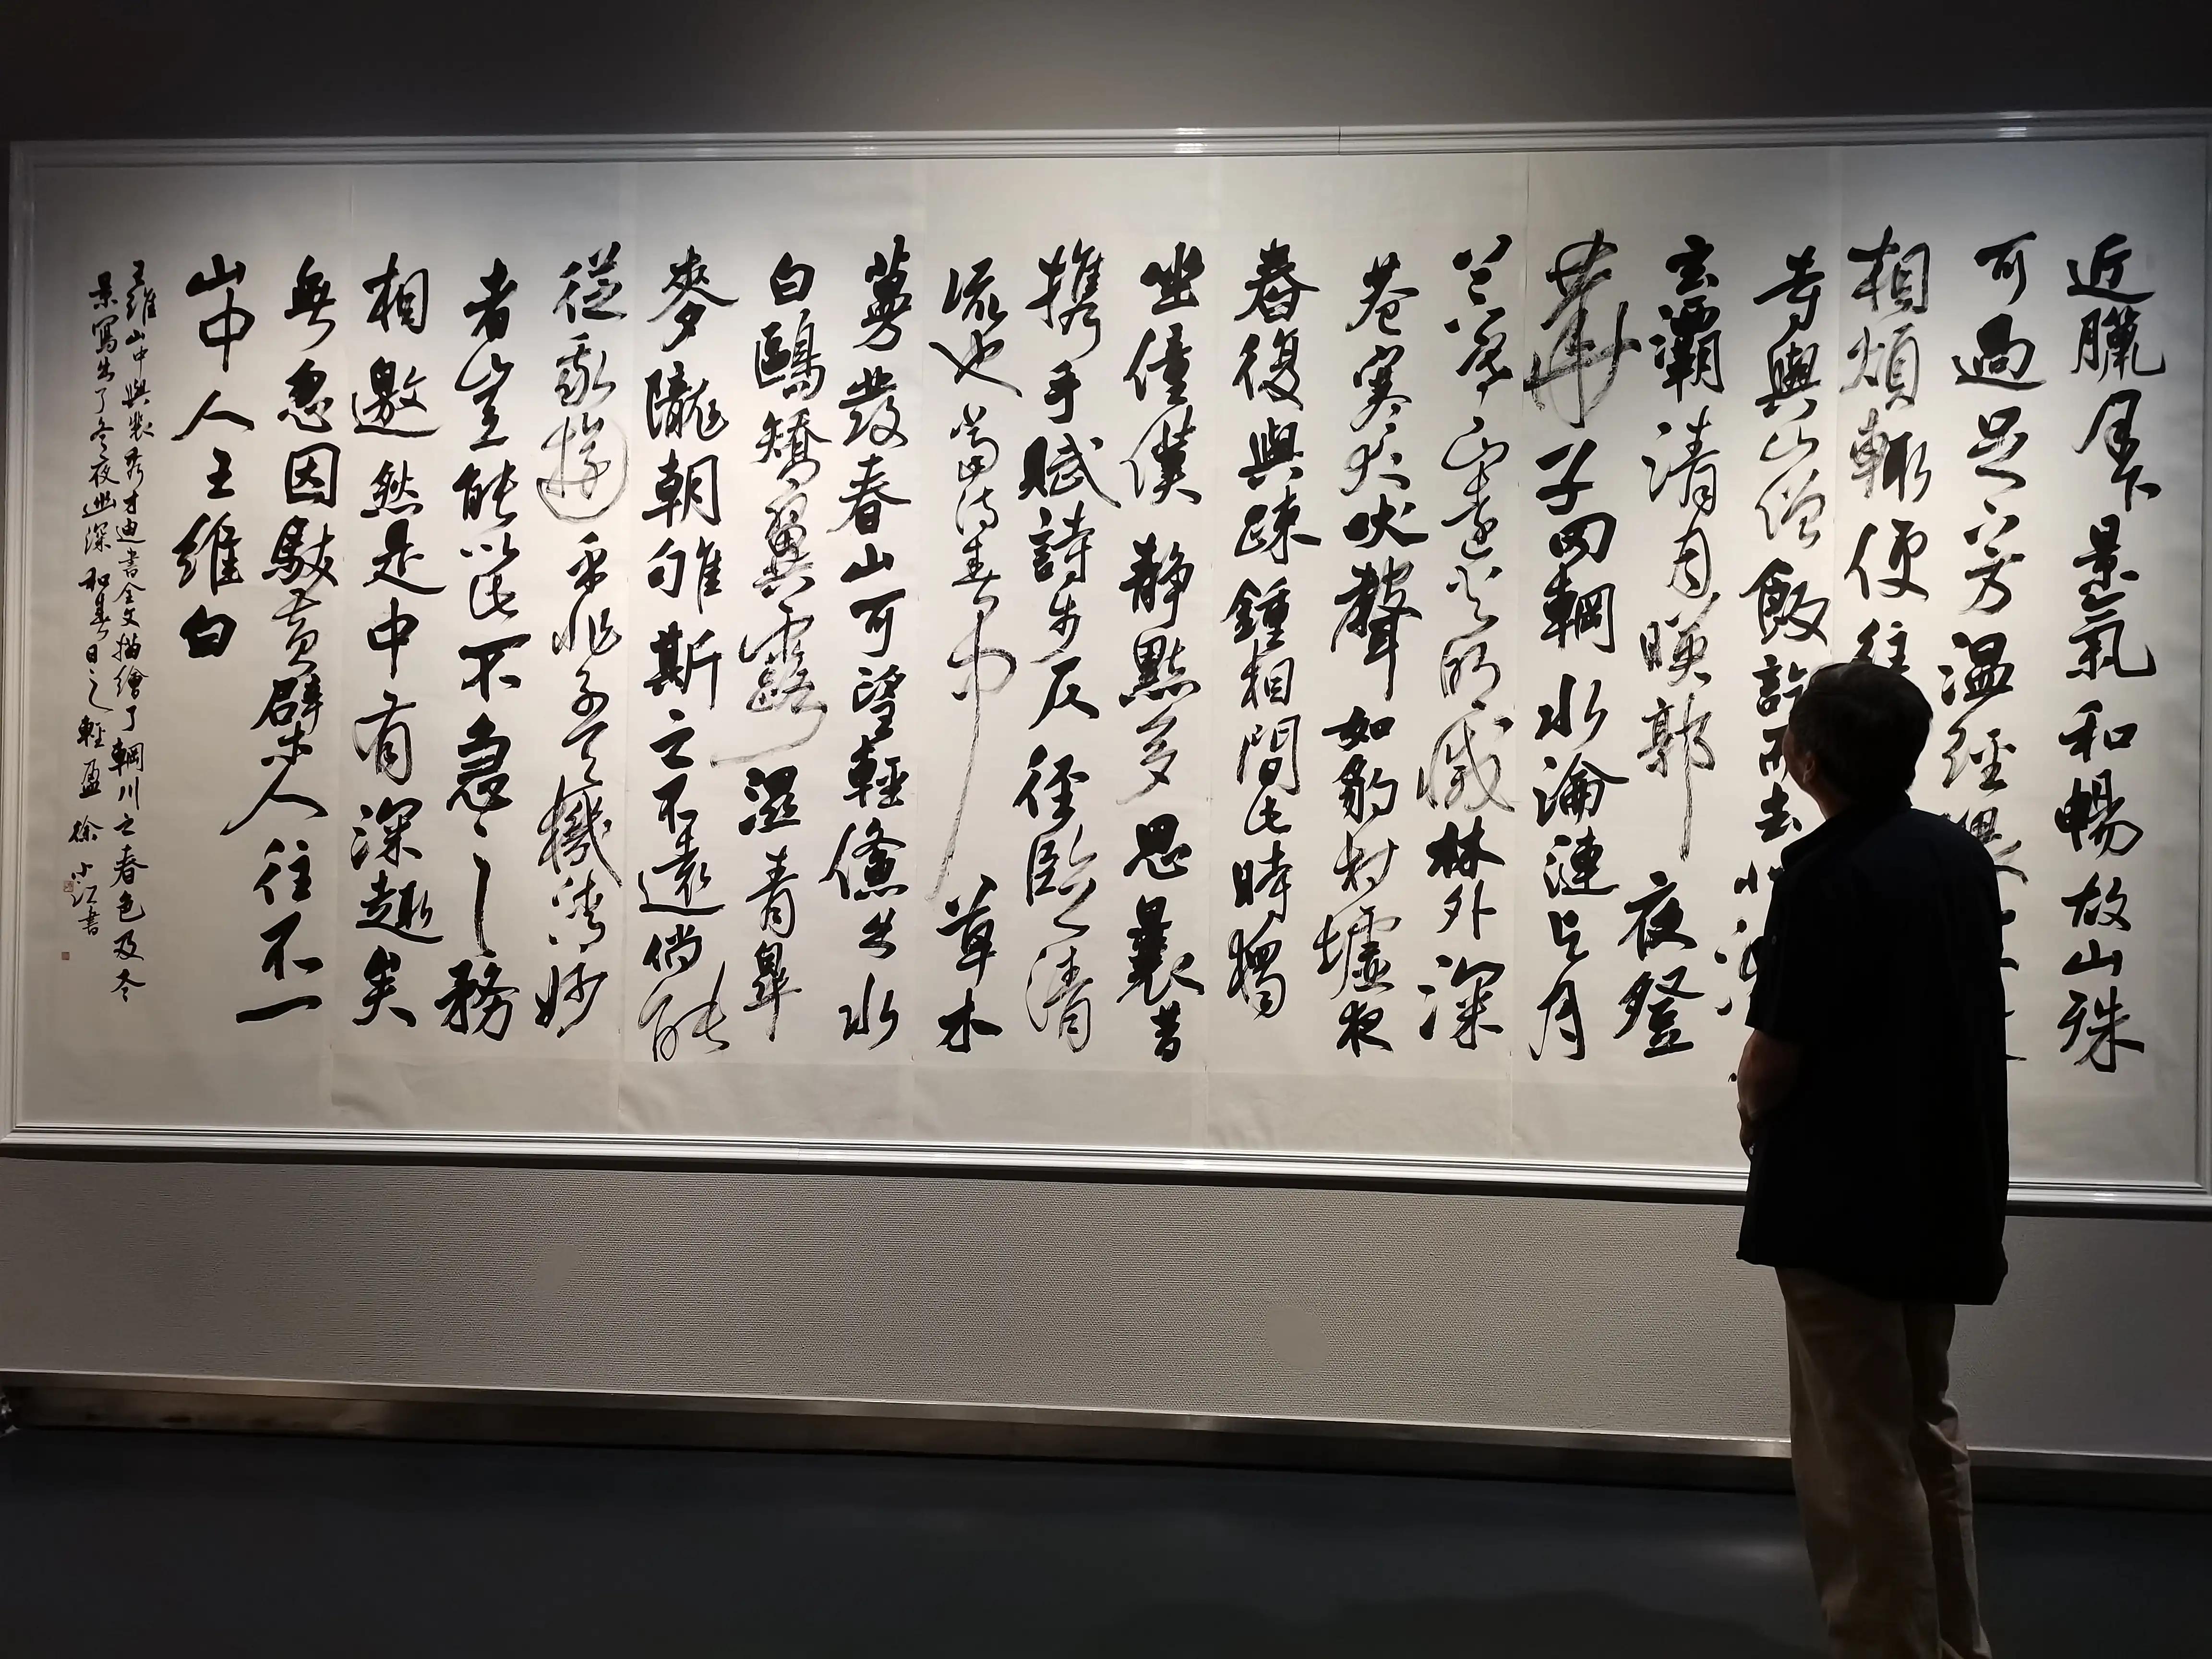 近臘月下景氣和暢故山殊
可過足下方温經
相煩輒便往
寺與山僧飯訖而去北
玄灞清月映郭夜登
華子岡輞水淪漣與月
上下寒山遠火明滅林外深
巷寒犬吠聲如豹村墟夜
舂復與疎鍾相間此時獨
坐僮僕静默多思曩昔
攜手賦詩步仄徑臨清
流也當待春中草木
蔓發春山可望輕鯈出水
白鷗矯翼露濕青皋
麥隴朝雊斯之不遠倘能
從我遊乎非子天機清妙
者豈能以此不急之務
相邀然是中有深趣矣
無忽因馱黃檗人往不一
山中人王維白
王維山中與裴秀才迪書全文描繪了輞川之春色及冬
景寫出了冬夜幽深和春日之輕盈 徐小江書